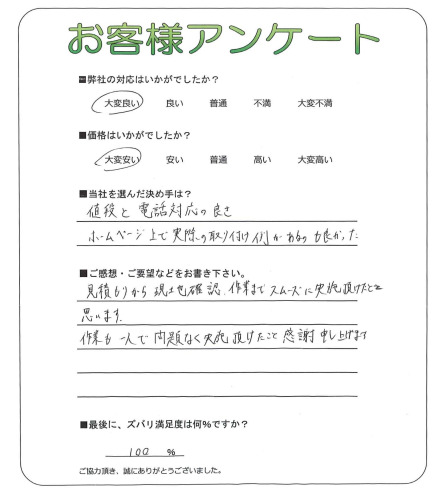 お客様アンケート
■弊社の対応はいかがでしたか?
大変良い 良い 普通 不満 大変不満
■価格はいかがでしたか?
大変安い 安い 普通 高い 大変高い
■当社を選んだ決め手は?
値段と電話対応の良さ
ホームページ上で実際の取り付け例があるのも良かった
■ご感想・ご要望などをお書き下さい。
見積もりから現地確認、作業までスムーズに実施頂けたと
思います.
作業も一人で問題なく実施頂けたこと感謝申し上げます
■最後に、ズバリ満足度は何%ですか?
100 %
ご協力頂き、誠にありがとうございました。